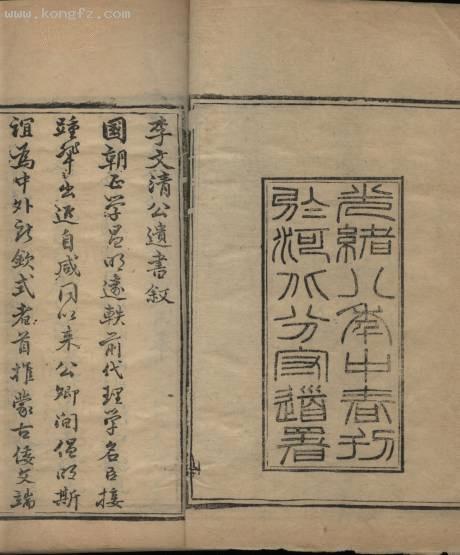 www.kongfz.com
光緒八年中春刊
於河北分守道署
李文清公遺書叙
國朝正學昌明遠軼前代理學名臣接
踵輩出近自咸同以來公卿間倡明斯
誼為中外所欽式者首推蒙古倭文端